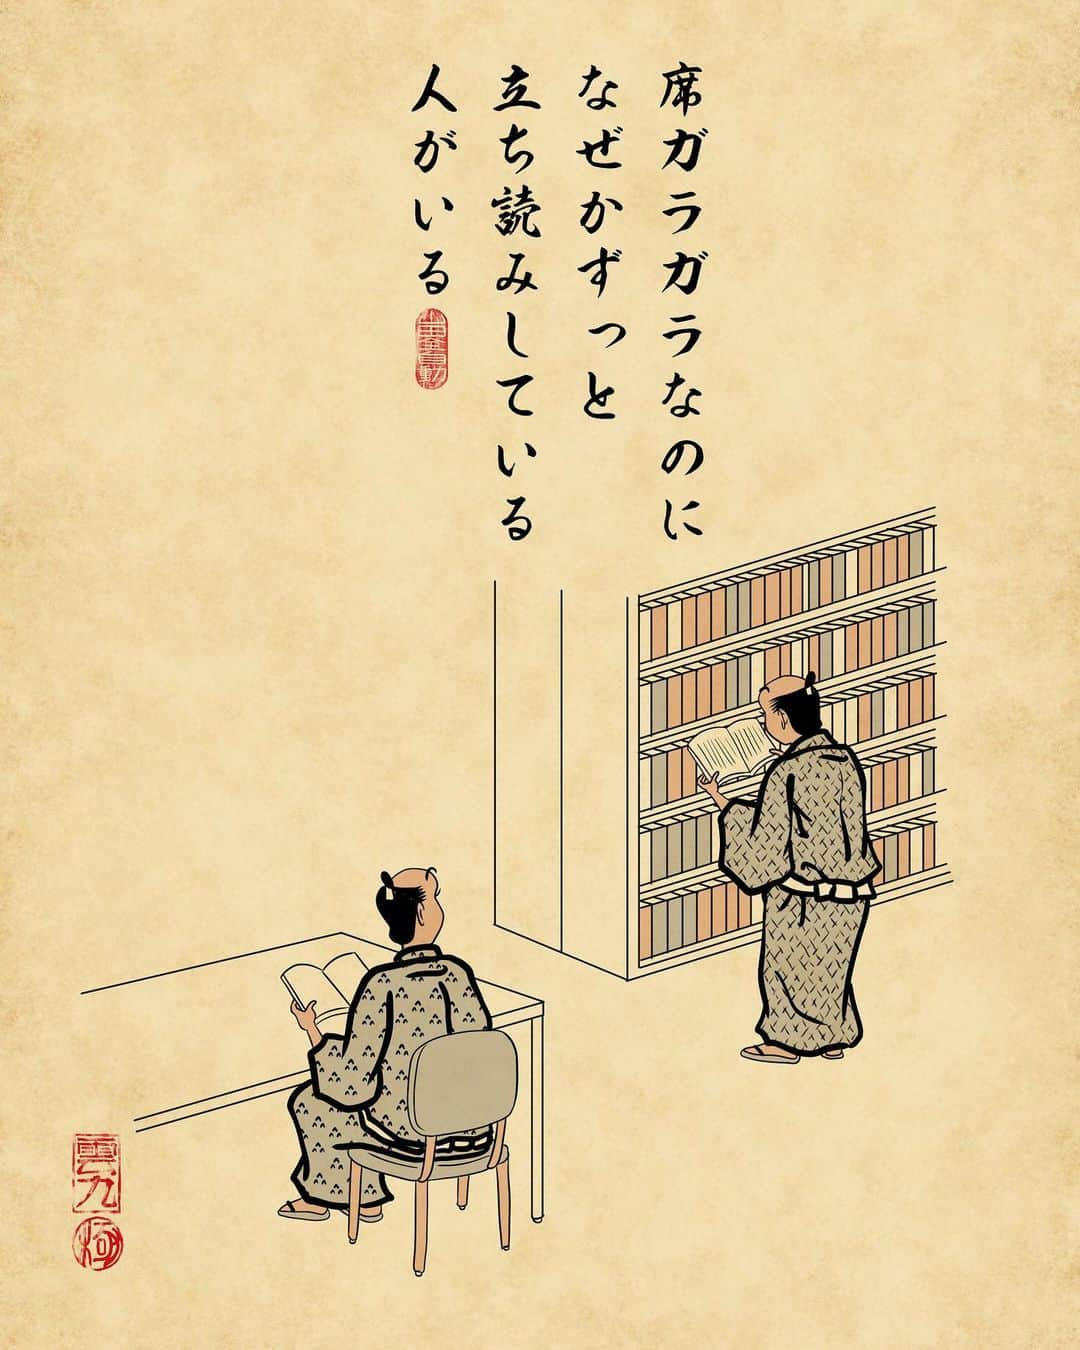 席ガラガラなのに
なぜかずっと
立ち読みしている
人がいる